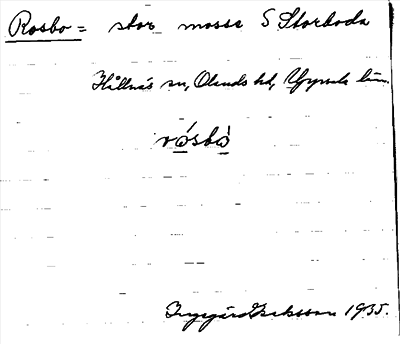 Rosbo = stor mosse S Storboda
Hållnäs sn, Olands hd, Uppsala län.
rósbò
Ingegärd Eriksson 1935.